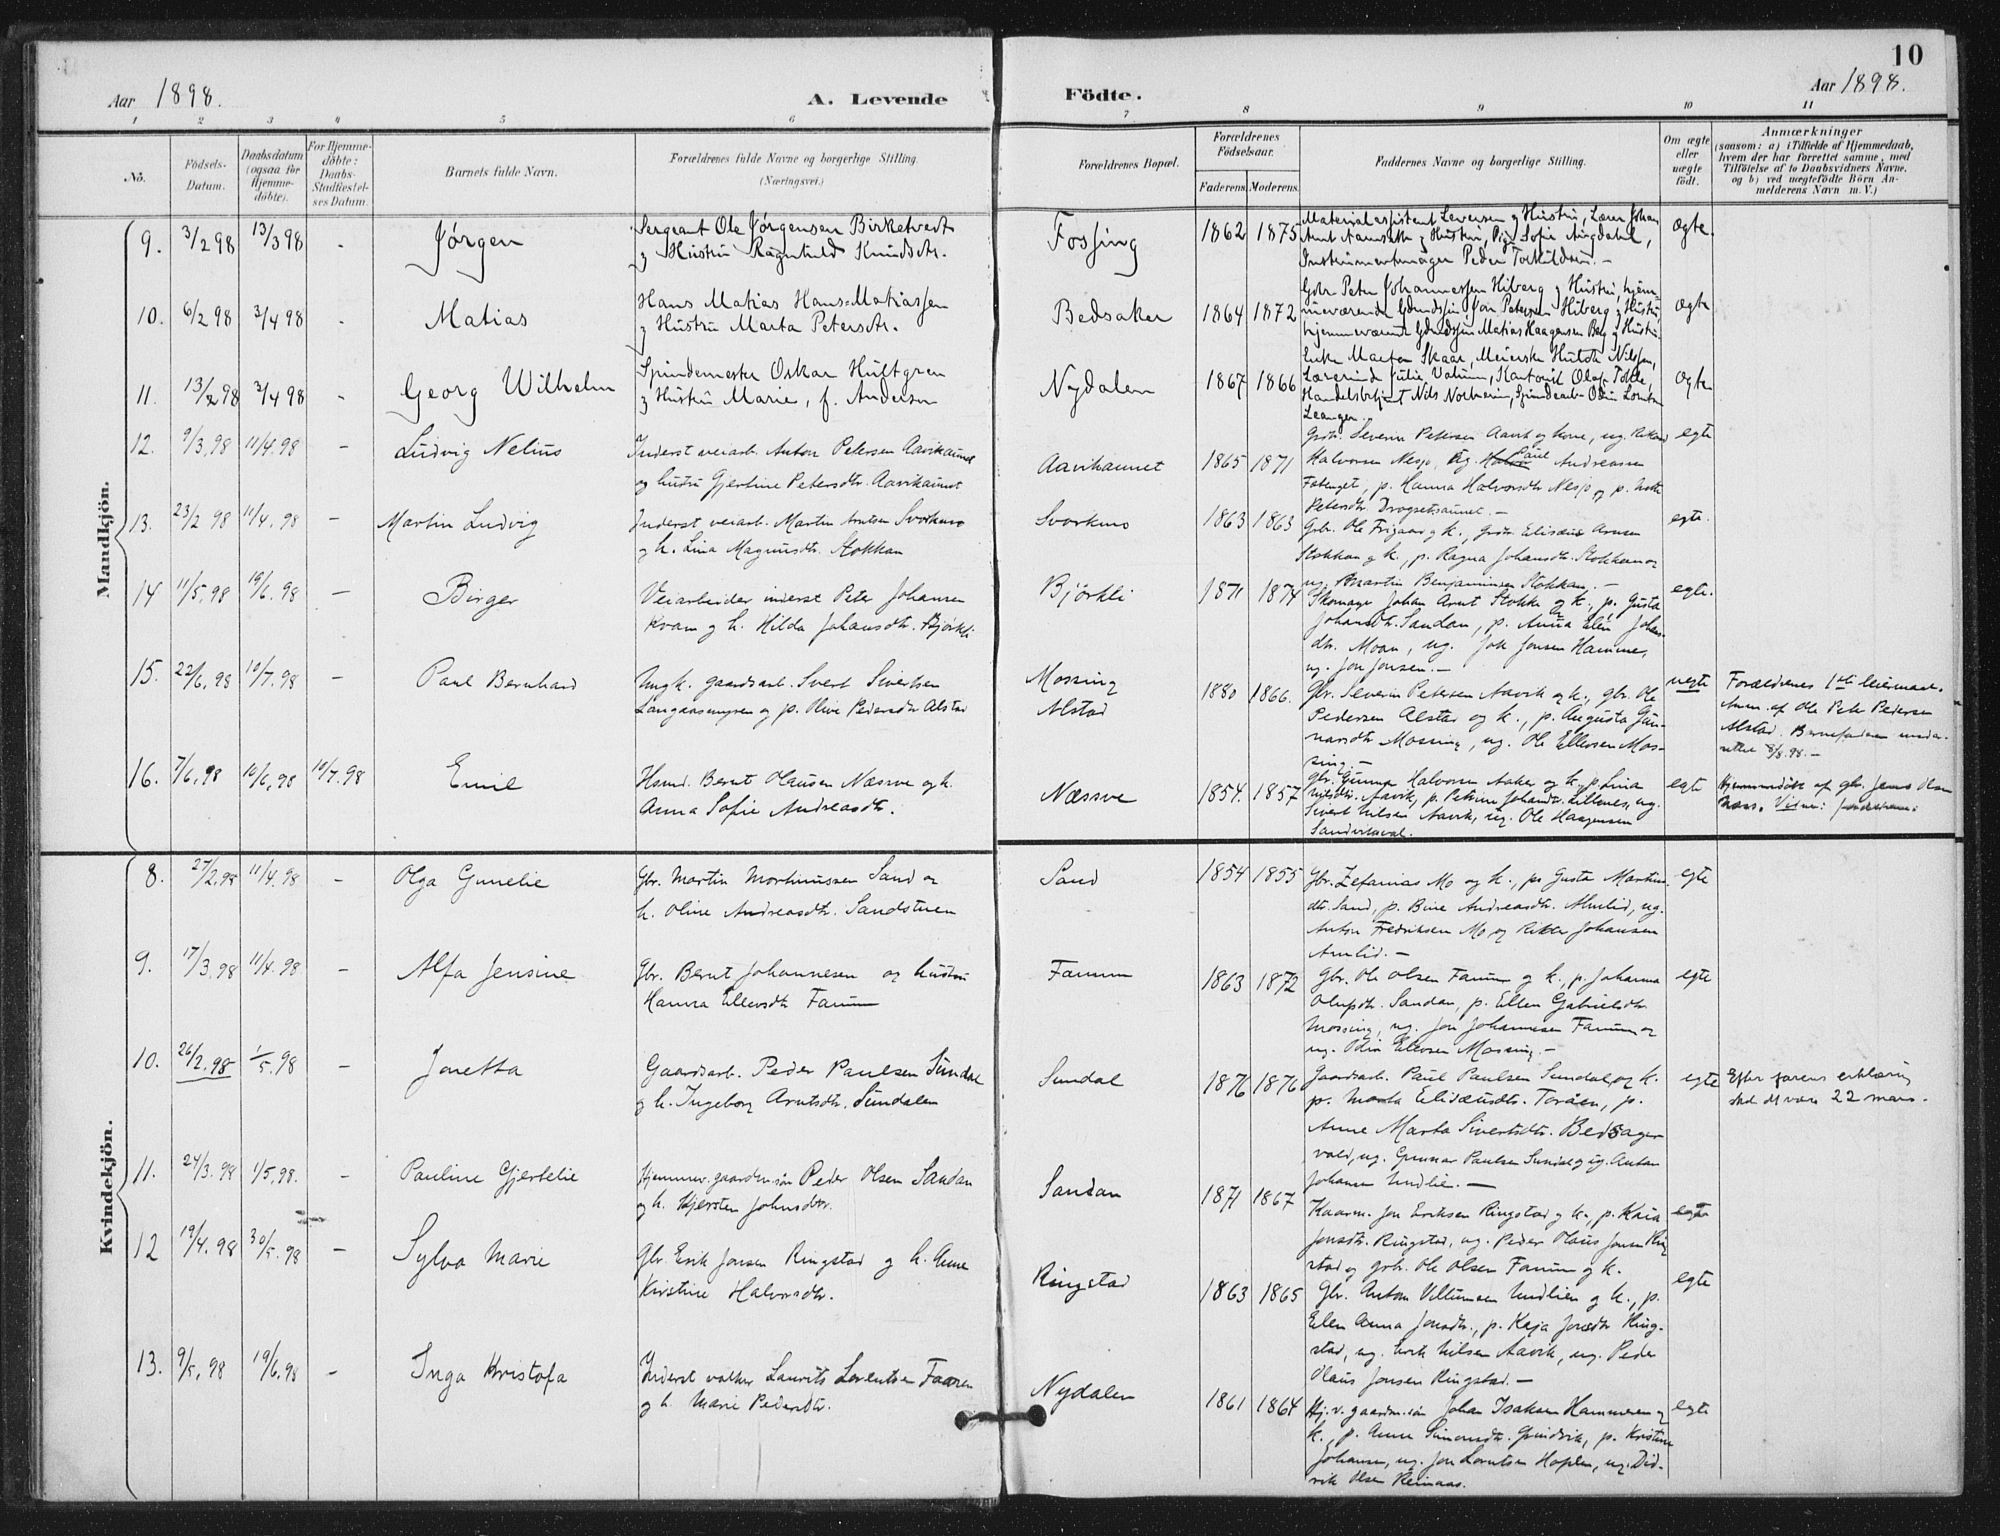 10
Aar 1898.
A. Levende
Födte.
Aar 1898.
1 2 3 4 5 6 7 8 9 10 11
No.
Födsels-
Datum.
Daabsdatum
(ogsaa for
Hjemme-
döbte).
For Hjemme-
döbte:
Daabs-
Stadfæstel-
ses Datum.
Barnets fulde Navn.
Forældrenes fulde Navne og borgerlige Stilling.
(Næringsvei.)
Forældrenes Bopæl.
Forældrenes
Födselsaar.
Faderens. Moderens.
Faddernes Navne og borgerlige Stilling.
Om ægte
eller
uægte
født.
Anmærkninger
(saasom: a) i Tilfælde af Hjemmedaab,
hvem der har forrettet samme, med
Tilföielse af to Daabsvidners Navne,
og b) ved uægtefödte Börn An-
melderens Navn m. V.)
Mandkjön.
9. 3/2 98 13/3 98 - Jørgen
Sergeant Ole Jørgensen Birketvedt
g Hustru Ragnhild Knudsdtr.
Fossing 1862 1875
Materialassistent Seversen g Hustru, Lærer Johan
Instrumentmager Peder Torkildsen. -
ægte.
10. 6/2 98 3/4 98 - Matias
Hans Matias Hans-Matiassen
g Hustru Marta Petersdtr.
Bedsaker 1864 1872
Gbr Peter Johannessen Hilberg g Hustru, hjem-
meværende Gdmdssøn Jon Petersen Hilberg g Hustru
hjemmeværende Gdmdssøn Matias Haagensen Berg g Hustru.
ægte
11. 13/2 98 3/4 98 - Georg Wilhelm
Spindemester Oskar Hultgren
g Hustru Marie, f. Andersen
Nydalen 1867 1866
Enke Maren Skaar, Meierske Hulda Nilssen,
Lærerinde Julie Vatum, Kontorist Olaf
Handelsbetjent Nils
Leangen.
ægte
12. 9/3, 98 11/4. 98 - Ludvig Nelius
Inderst veiarb. Anton Petersen Aavikaunet
og hustru Gjertine Petersdtr. Aavikaunet
Aavikaunet 1865 1871
Gbr. Severin Petersen Aavik og kone, ug. Rikard
Halvorsen Nesjø, ug. Paul Andreassen
p. Hanna Halvorsdtr Nesjø og p.
Petersdtr. Drogsetaunet. -
egte
13. 23/2 98 11/4. 98 - Martin Ludvig
Inderst veiarb. Martin Arntsen Svorkmo
og h. Lina Magnusdtr. Stokkan
Svorkmo 1863 1863
Gbr. Ole Frigaar og k., Gbr. Elisæus Arnsen
Stokkan og k., p. Ragna Johansdtr. Stokkan og
ug. Martin Benjaminsen Stokkan. -
egte.
14 11/5, 98 19/6. 98 - Birger
Veiarbeider inderst Peter Johansen
Kvam og h. Hilda Johansdtr. Bjørkli
Bjørkli 1871 1874
Skomager Johan Arnt Stokke og k., p. Gusta
Johansdtr. Sandan, p. Anna Elen Johans-
dtr. Moan, ug. Jon Jonsen Hamme,
ug. Jon Jonsen. -
egte.
15. 22/6. 98 10/7. 98 - Paul Bernhard
Ungk. gaardsarb. Sivert Sivertsen
Langaasmyren og p. Olive Pedersdtr Alstad
Mossing
Alstad
1880 1866.
Gbr. Severin Petersen Aavik og k., gbr. Ole
Pedersen Alstad og k., p. Augusta Gun-
narsdtr Mossing, ug. Ole Ellevsen Mos-
sing. -
uegte
Forældrenes 1ste leiermaal.
Anm. af Ole Peter Pedersen
Alstad. Barnefaderen under-
rettet 8/8. 98. -
16. 7/6. 98 10/6, 98 10/7. 98 Emil
Hsmd. Bernt Olausen Næssve og h.
Anna Sofie Andreasdtr.
Næssve 1854. 1857
gbr. Gunnar Halvorsen Aaker og k., p. Lina
Nilsdtr. Aavik, p. Petrine Johansdtr. Lillenes, ug.
Sivert Nilsen Aavik, ug. Ole Haagensen
egte
Hjemmedøbt af gbr. Jens Olsen
Næss. Vidner: Forældrene:
Kvindekjön.
8. 27/2. 98 11/4. 98 - Olga Gunelie
Gbr. Martin Mortinussen Sand og
h. Oline Andreasdtr. Sandstuen
Sand 1854 1855
Gbr. Zefanias Mo og k., p. Gusta Martins-
dtr. Sand, p. Bine Andreasdtr. Amlid, ug.
Anton Fredriksen Mo og Rikla Johansen
Amlid. -
egte
9. 17/3. 98 11/4. 98 - Alfa Jensine
Gbr. Bernt Johannesen og hustru
Hanna Ellevsdtr Fanum
Fanum 1863 1872
Gbr. Ole Olsen Fanum og k., p. Johanna
Olufsdtr. Sandan, p. Ellen Gabrielsdtr.
Mossing, ug. Jon Johannesen Fanum og
ug. Odin Ellevsen Mossing. -
egte
10. 26/2. 98 1/5. 98 - Jonetta
Gaardsarb. Peder Paulsen Sundal
og h. Ingeborg Arntsdtr. Sundalen
Sundal 1876 1876
Gaardsarb. Paul Paulsen Sundal og k.
p. Marta Elisæusdtr. Toråen, p.
Anne Marta Sivertsdtr. Bedsager
vald, ug. Gunnar Paulsen Sundal og ug. Anton
Johansen Undlie. -
egte
Efter farens erklæring
skal det være 22 mars.
11. 24/3. 98 1/5, 98. - Pauline Gjertelie
Hjemmev. gaardm.søn Peder Olsen Sandan
og h. Kjersten Johnsdtr.
Sandan 1871 1867
Kaarm. Jon Eriksen Ringstad og k., p. Kaia
Jonsdtr. Ringstad, ug. Peder Olaus Jonsen Ring-
stad og gbr. Ole Olsen Fanum og k.
egte
12 19/4. 98 30/5. 98 - Sylva Marie
Gbr. Erik Jonsen Ringstad og h. Anne
Kirstine Halvorsdtr.
Ringstad 1863 1865
Gbr. Anton Villumsen Undlien og k., p.
Elen Anna Jonsdtr., p. Kaja Jonsdtr Ring-
stad, ug. Erik Nilsen Aavik, ug. Peder
Olaus Jonsen Ringstad. -
egte
13. 9/5, 98 19/6, 98 - Inga Kristofa
Inderst valker Laurits Lorentsen Faaren
og h. Marie Pedersdtr.
Nydalen 1861 1864
Hj.v. gaardm.søn Johan Isaksen Hammeren og
k., p. Anne Simonsdtr. Grindvik, p. Kristine
Johansen, ug. Jon Lorntsen Hoplen, ug. Did-
rik Olsen Reinaas.
egte